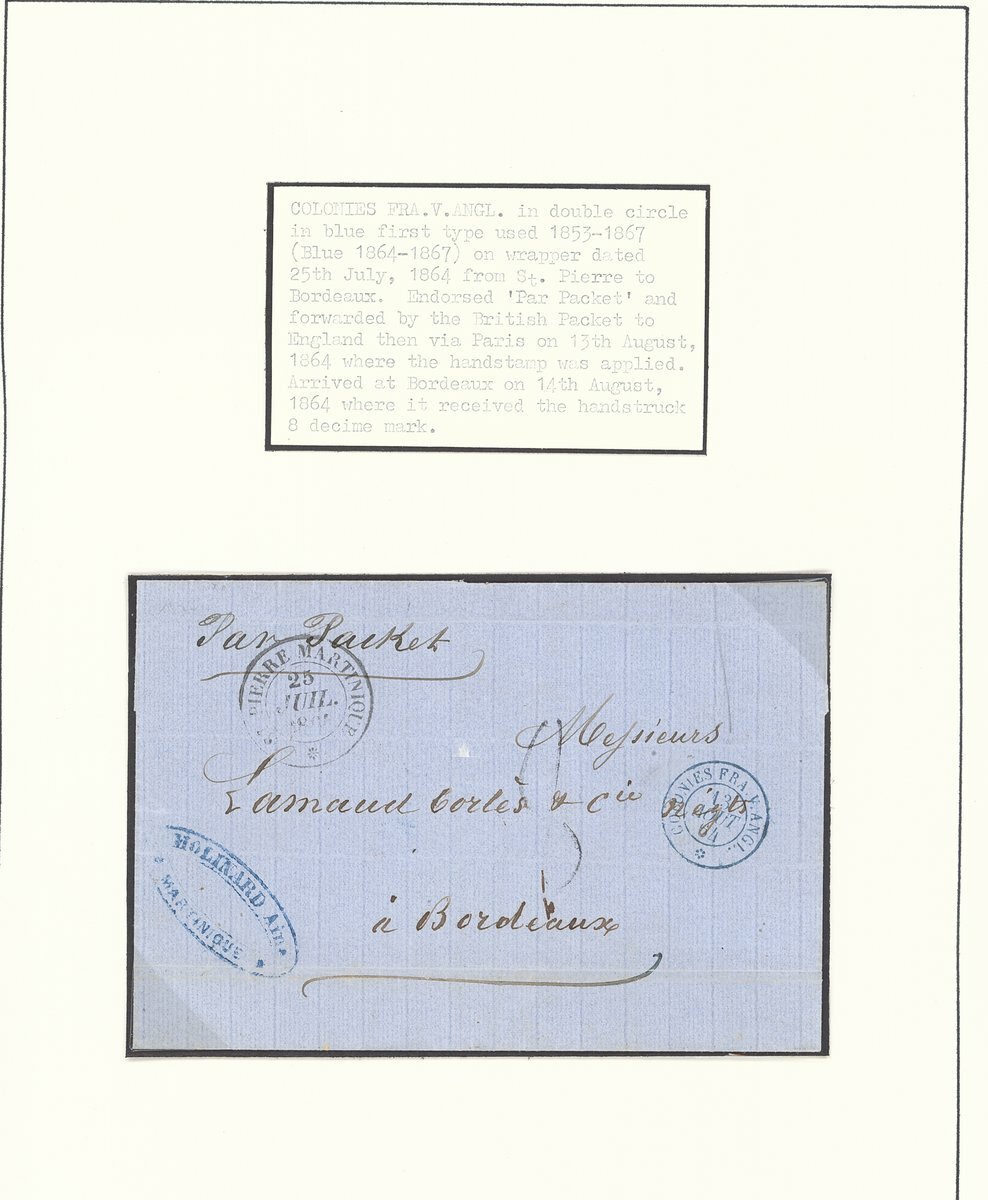 COLONIES FRA.V.ANGL. in double circle
in blue first type used 1853-1867
(Blue 1864-1867) on wrapper dated
25th July, 1864 from St. Pierre to
Bordeaux. Endorsed 'Par Packet' and
forwarded by the British Packet to
England then via Paris on 13th August,
1864 where the handstamp was applied.
Arrived at Bordeaux on 14th August,
1864 where it received the handstruck
8 decime mark.
Par Packet
PIERRE MARTINIQUE
25
JUIL.
Messieurs
Lamaud Cortès & Cie Négts
COLONIES FRA.V.ANGL.
13
AOUT
MOLINARD AINE
MARTINIQUE
à Bordeaux